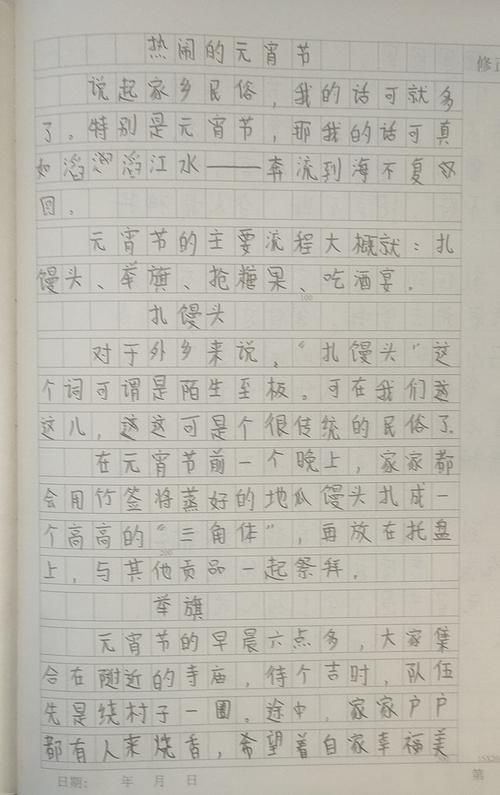 热闹的元宵节
修订
说起家乡民俗，我的话可就多
了。特别是元宵节，那我的话可真
如滔滔江水——奔流到海不复
回。
元宵节的主要流程大概就：扎
馒头、举旗、抢糖果、吃酒宴。
100
扎馒头
对于外乡来说，“扎馒头”这
个词可谓是陌生至极。可在我们这
这儿，这这可是个很传统的民俗了。
在元宵节前一个晚上，家家都
会用竹签将蒸好的地瓜馒头扎成一
个高高的“三角体”，再放在托盘
200
上，与其他贡品一起祭拜。
举旗
元宵节的早晨六点多，大家集
合在附近的寺庙，待个吉时，队伍
先是绕村子一圈。途中，家家户户
都有人来烧香，希望着自家幸福美
日期： 年 月 日
第